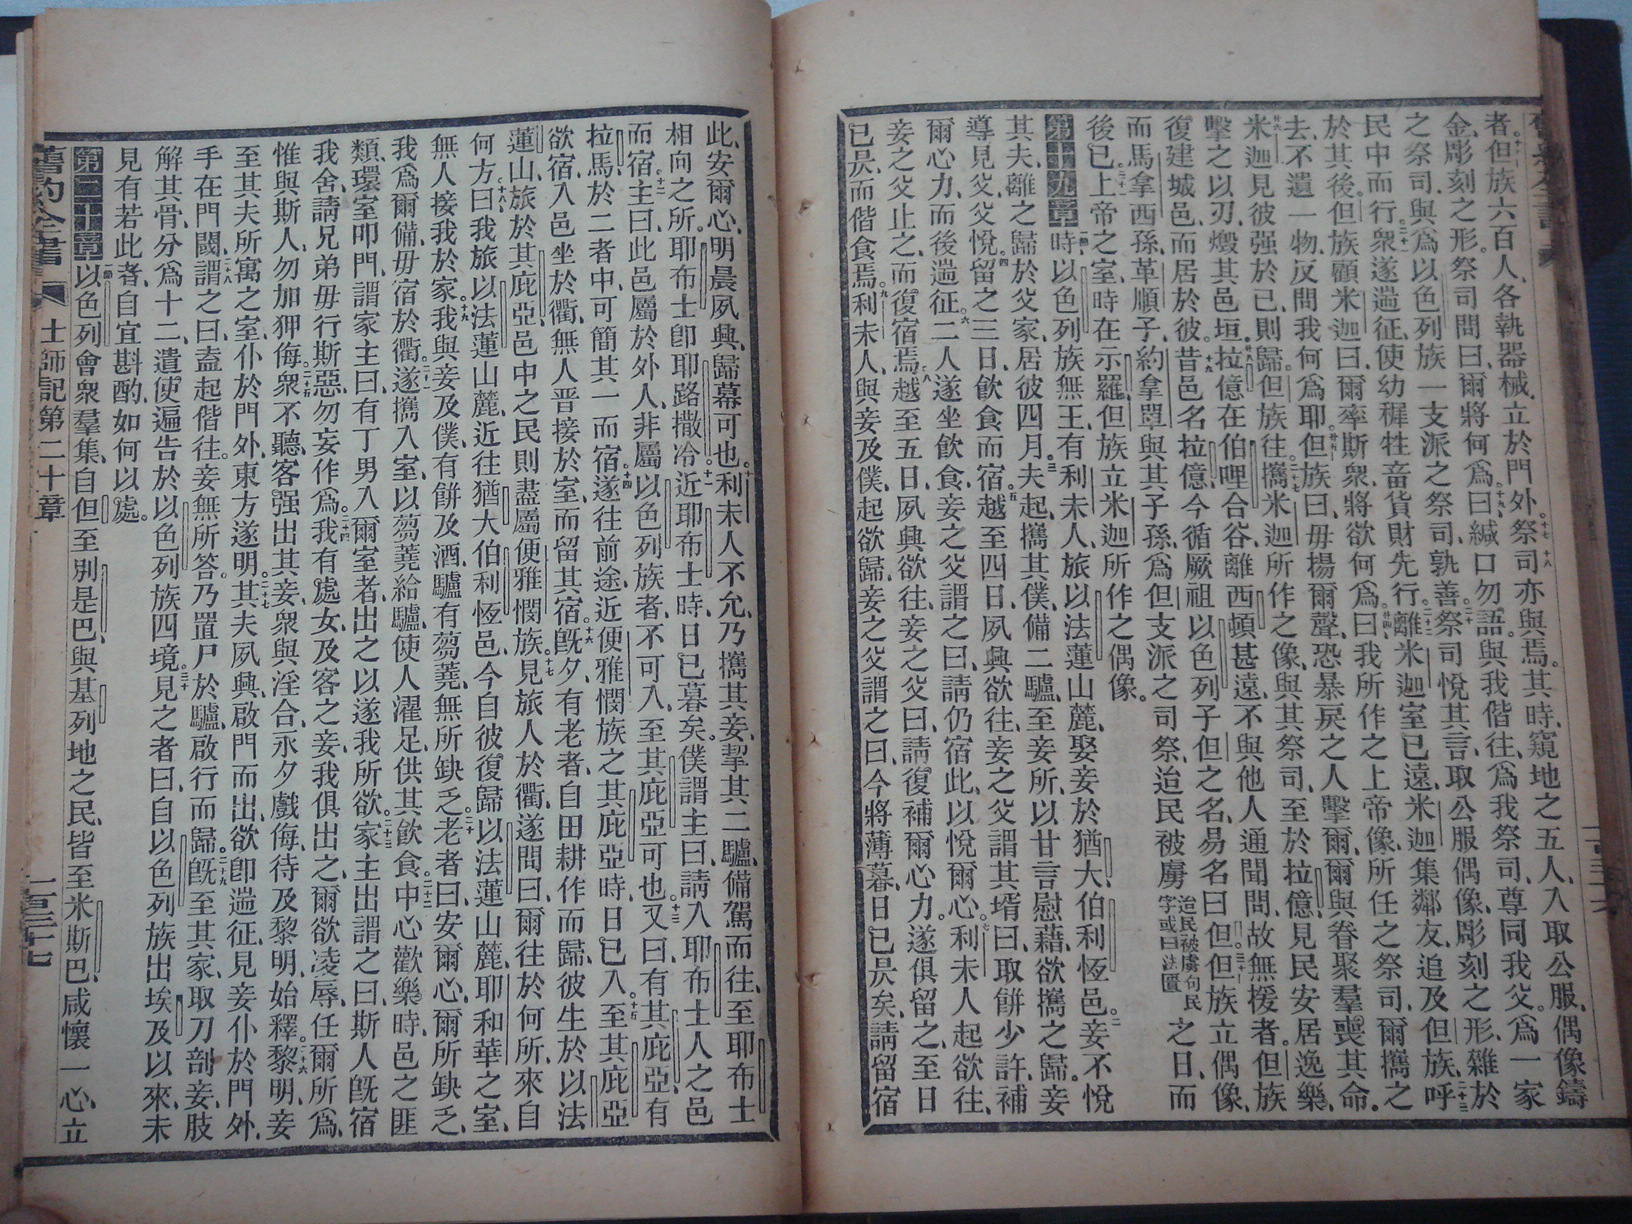 者、十一但族六百人、各執器械、立於門外。十七十八祭司亦與焉。其時、窺地之五人、入取公服、偶像、鑄
金、彫刻之形。祭司問曰、爾將何爲。十九曰、緘口勿語。與我偕往、爲我祭司、尊同我父、爲一家
之祭司、與爲以色列族一支派之祭司、孰善。二十祭司悅其言、取公服、偶像、彫刻之形、雜於
民中而行。二十一衆遂遄征、使幼穉牲畜貨財先行。二十二離米迦室已遠、米迦集鄰友、追及但族、二十三呼
於其後。但族顧米迦曰、爾率斯衆、將欲何爲。二十四曰、我所作之上帝像、所任之祭司、爾攜之
去、不遺一物、反問我何爲耶。二十五但族曰、毋揚爾聲、恐暴戾之人擊爾、爾與眷聚羣喪其命。
二十六米迦見彼强於己、則歸。但族往、二十七攜米迦所作之像、與其祭司、至於拉億、見民安居逸樂、
擊之以刃、燬其邑垣。二十八拉億在伯哩合谷、離西頓甚遠、不與他人通聞問、故無援者。但族
復建城邑、而居於彼。二十九昔邑名拉億、今循厥祖以色列子但之名、易名曰但。三十但族立偶像、
而馬拿西孫、革順子、約拿單與其子孫、爲但支派之司祭、迨民被虜迨民被虜句民字或曰法匱之日、而
後已。三十一上帝之室、時在示羅、但族立米迦所作之偶像。
第十九章一節時、以色列族無王、有利未人旅以法蓮山麓、娶妾於猶大伯利恆邑。二妾不悅
其夫、離之歸於父家、居彼四月。三夫起攜其僕、備二驢、至妾所、以甘言慰藉、欲攜之歸。妾
導見父、父悅、四留之三日、飲食而宿。五越至四日、夙興欲往、妾之父謂其壻曰、取餅少許、補
爾心力、而後遄征。六二人遂坐飲食、妾之父謂之曰、請仍宿此、以悅爾心。七利未人起欲往、
妾之父止之、而復宿焉。八越至五日、夙興欲往、妾之父曰、請復補爾心力。遂俱留之、至日
已昃、而偕食焉。九利未人與妾及僕、起欲歸、妾之父謂之曰、今將薄暮、日已昃矣、請留宿
此、安爾心、明晨夙興、歸幕可也。十利未人不允、乃攜其妾、挈其二驢、備駕而往、至耶布士
相向之所。耶布士卽耶路撒冷。十一近耶布士時、日已暮矣。僕謂主曰、請入耶布士人之邑
而宿。十二主曰、此邑屬於外人、非屬以色列族者、不可入、至其庇亞可也。十三又曰、有其庇亞、有
拉馬、於二者中、可簡其一而宿。十四遂往前途、近便雅憫族之其庇亞時、日已入。十五至其庇亞
欲宿、入邑坐於衢、無人晋接於室而留其宿。十六旣夕、有老者自田耕作而歸、彼生於以法
蓮山、旅於其庇亞、邑中之民則盡屬便雅憫族。十七見旅人於衢、遂問曰、爾往於何所、來自
何方。十八曰、我旅以法蓮山麓、近往猶大伯利恆邑、今自彼復歸以法蓮山麓、耶和華之室、
無人接我於家。十九我與妾及僕、有餅及酒、驢有蒭蕘、無所缺乏。二十老者曰、安爾心、爾所缺乏、
我爲爾備、毋宿於衢。二十一遂攜入室、以蒭蕘給驢、使人濯足、供其飲食。二十二中心歡樂時、邑之匪
類、環室叩門、謂家主曰、有丁男入爾室者、出之以遂我所欲。二十三家主出謂之曰、斯人旣宿
我舍、請兄弟毋行斯惡、勿妄作爲。二十四我有處女、及客之妾、我俱出之、爾欲凌辱、任爾所爲、
惟與斯人勿加狎侮。二十五衆不聽、客强出其妾、衆與淫合、永夕戲侮、待及黎明始釋。二十六黎明、妾
至其夫所寓之室、仆於門外、東方遂明。二十七其夫夙興、啟門而出、欲卽遄征、見妾仆於門外、
手在門閾。二十八謂之曰、盍起偕往。妾無所答。乃置尸於驢、啟行而歸。二十九旣至其家、取刀剖妾、肢
解其骨、分爲十二、遣使遍告於以色列族四境。三十見之者曰、自以色列族出埃及以來、未
見有若此者、自宜斟酌、如何以處。
第二十章一節以色列會衆羣集、自但至別是巴、與基列地之民、皆至米斯巴、咸懷一心、立
舊約全書 士師記第二十章 一百三十七